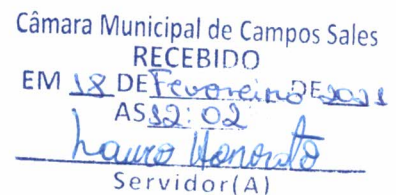 Câmara Municipal de Campos Sales
RECEBIDO
EM 18 DE Fevereiro DE 2021
AS 12:02
Lauro Honorato
Servidor(A)